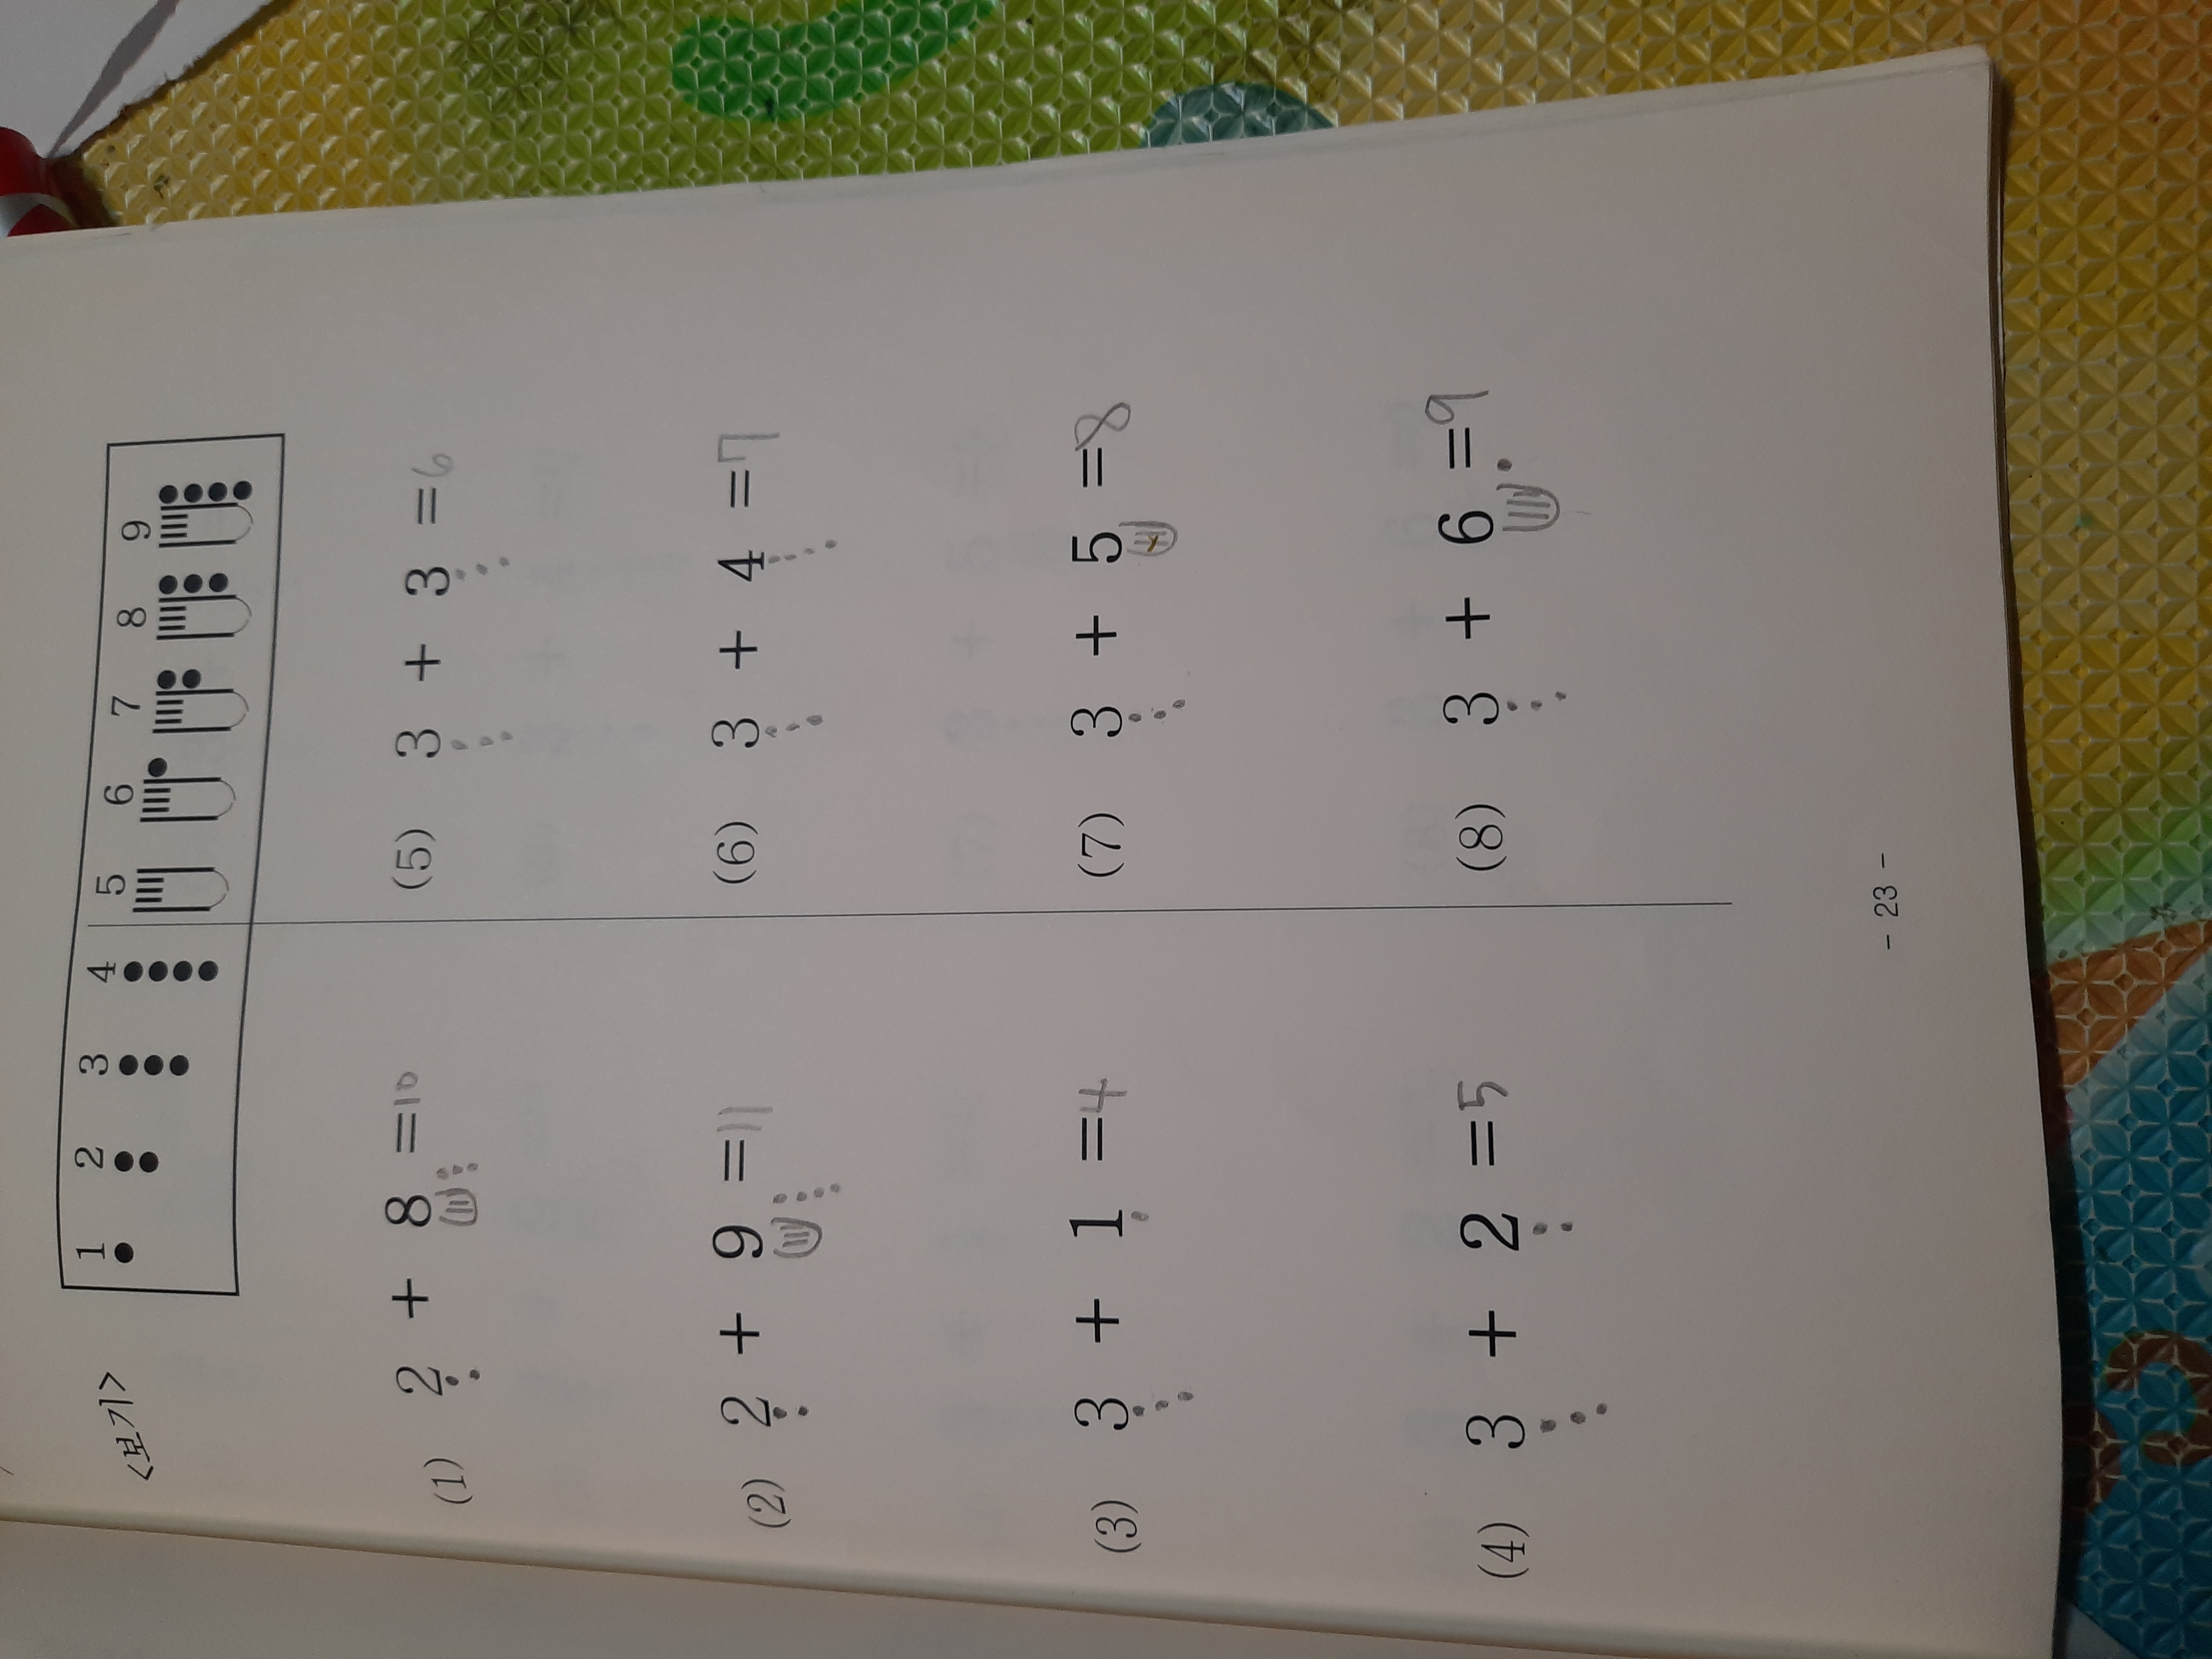 <보기>
1 2 3 4 5 6 7 8 9
(1) 2 + 8 =10
(2) 2 + 9 =11
(3) 3 + 1 =4
(4) 3 + 2 =5
(5) 3 + 3 =6
(6) 3 + 4 =7
(7) 3 + 5 =8
(8) 3 + 6 =9
- 23 -